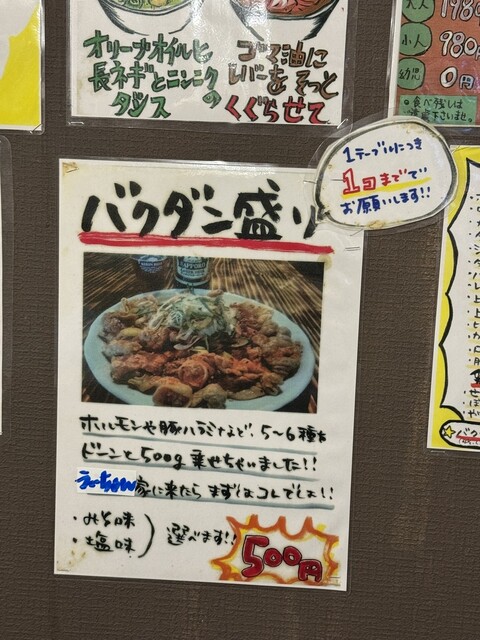 オリーブオイルと
長ネギとニンニクの
タジス
ゴマ油に
レバーをそっと
くぐらせて
大人 1980
小人 980
幼児 0円
・食べ残しは
1テーブルにつき
1コまでで
お願いします!!
バクダン盛り
ホルモンや豚ハラミなど、5〜6種を
ドーンと500g乗せちゃいました!!
家に来たら まずはコレでしょ!!
・みそ味
・塩味
選べます!!
500円